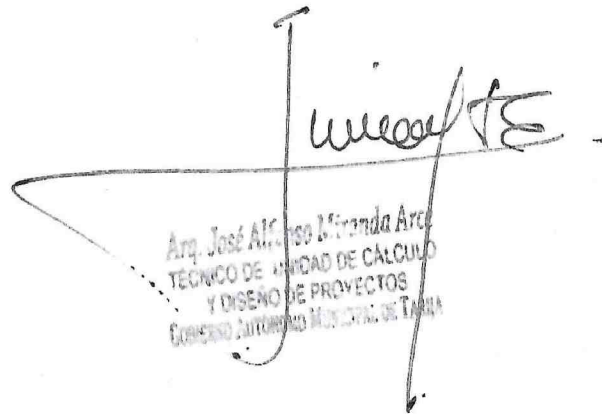 Arq. José Alfonso Miranda Arce
TÉCNICO DE UNIDAD DE CÁLCULO
Y DISEÑO DE PROYECTOS
GOBIERNO AUTÓNOMO MUNICIPAL DE TARIJA